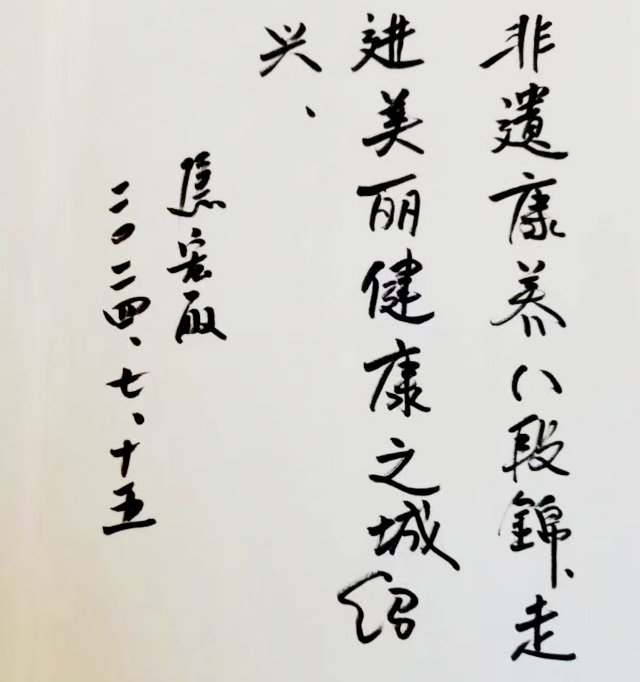 非遺康养八段錦、走
进美丽健康之城绍
兴、
宏
二〇二四、七、十五